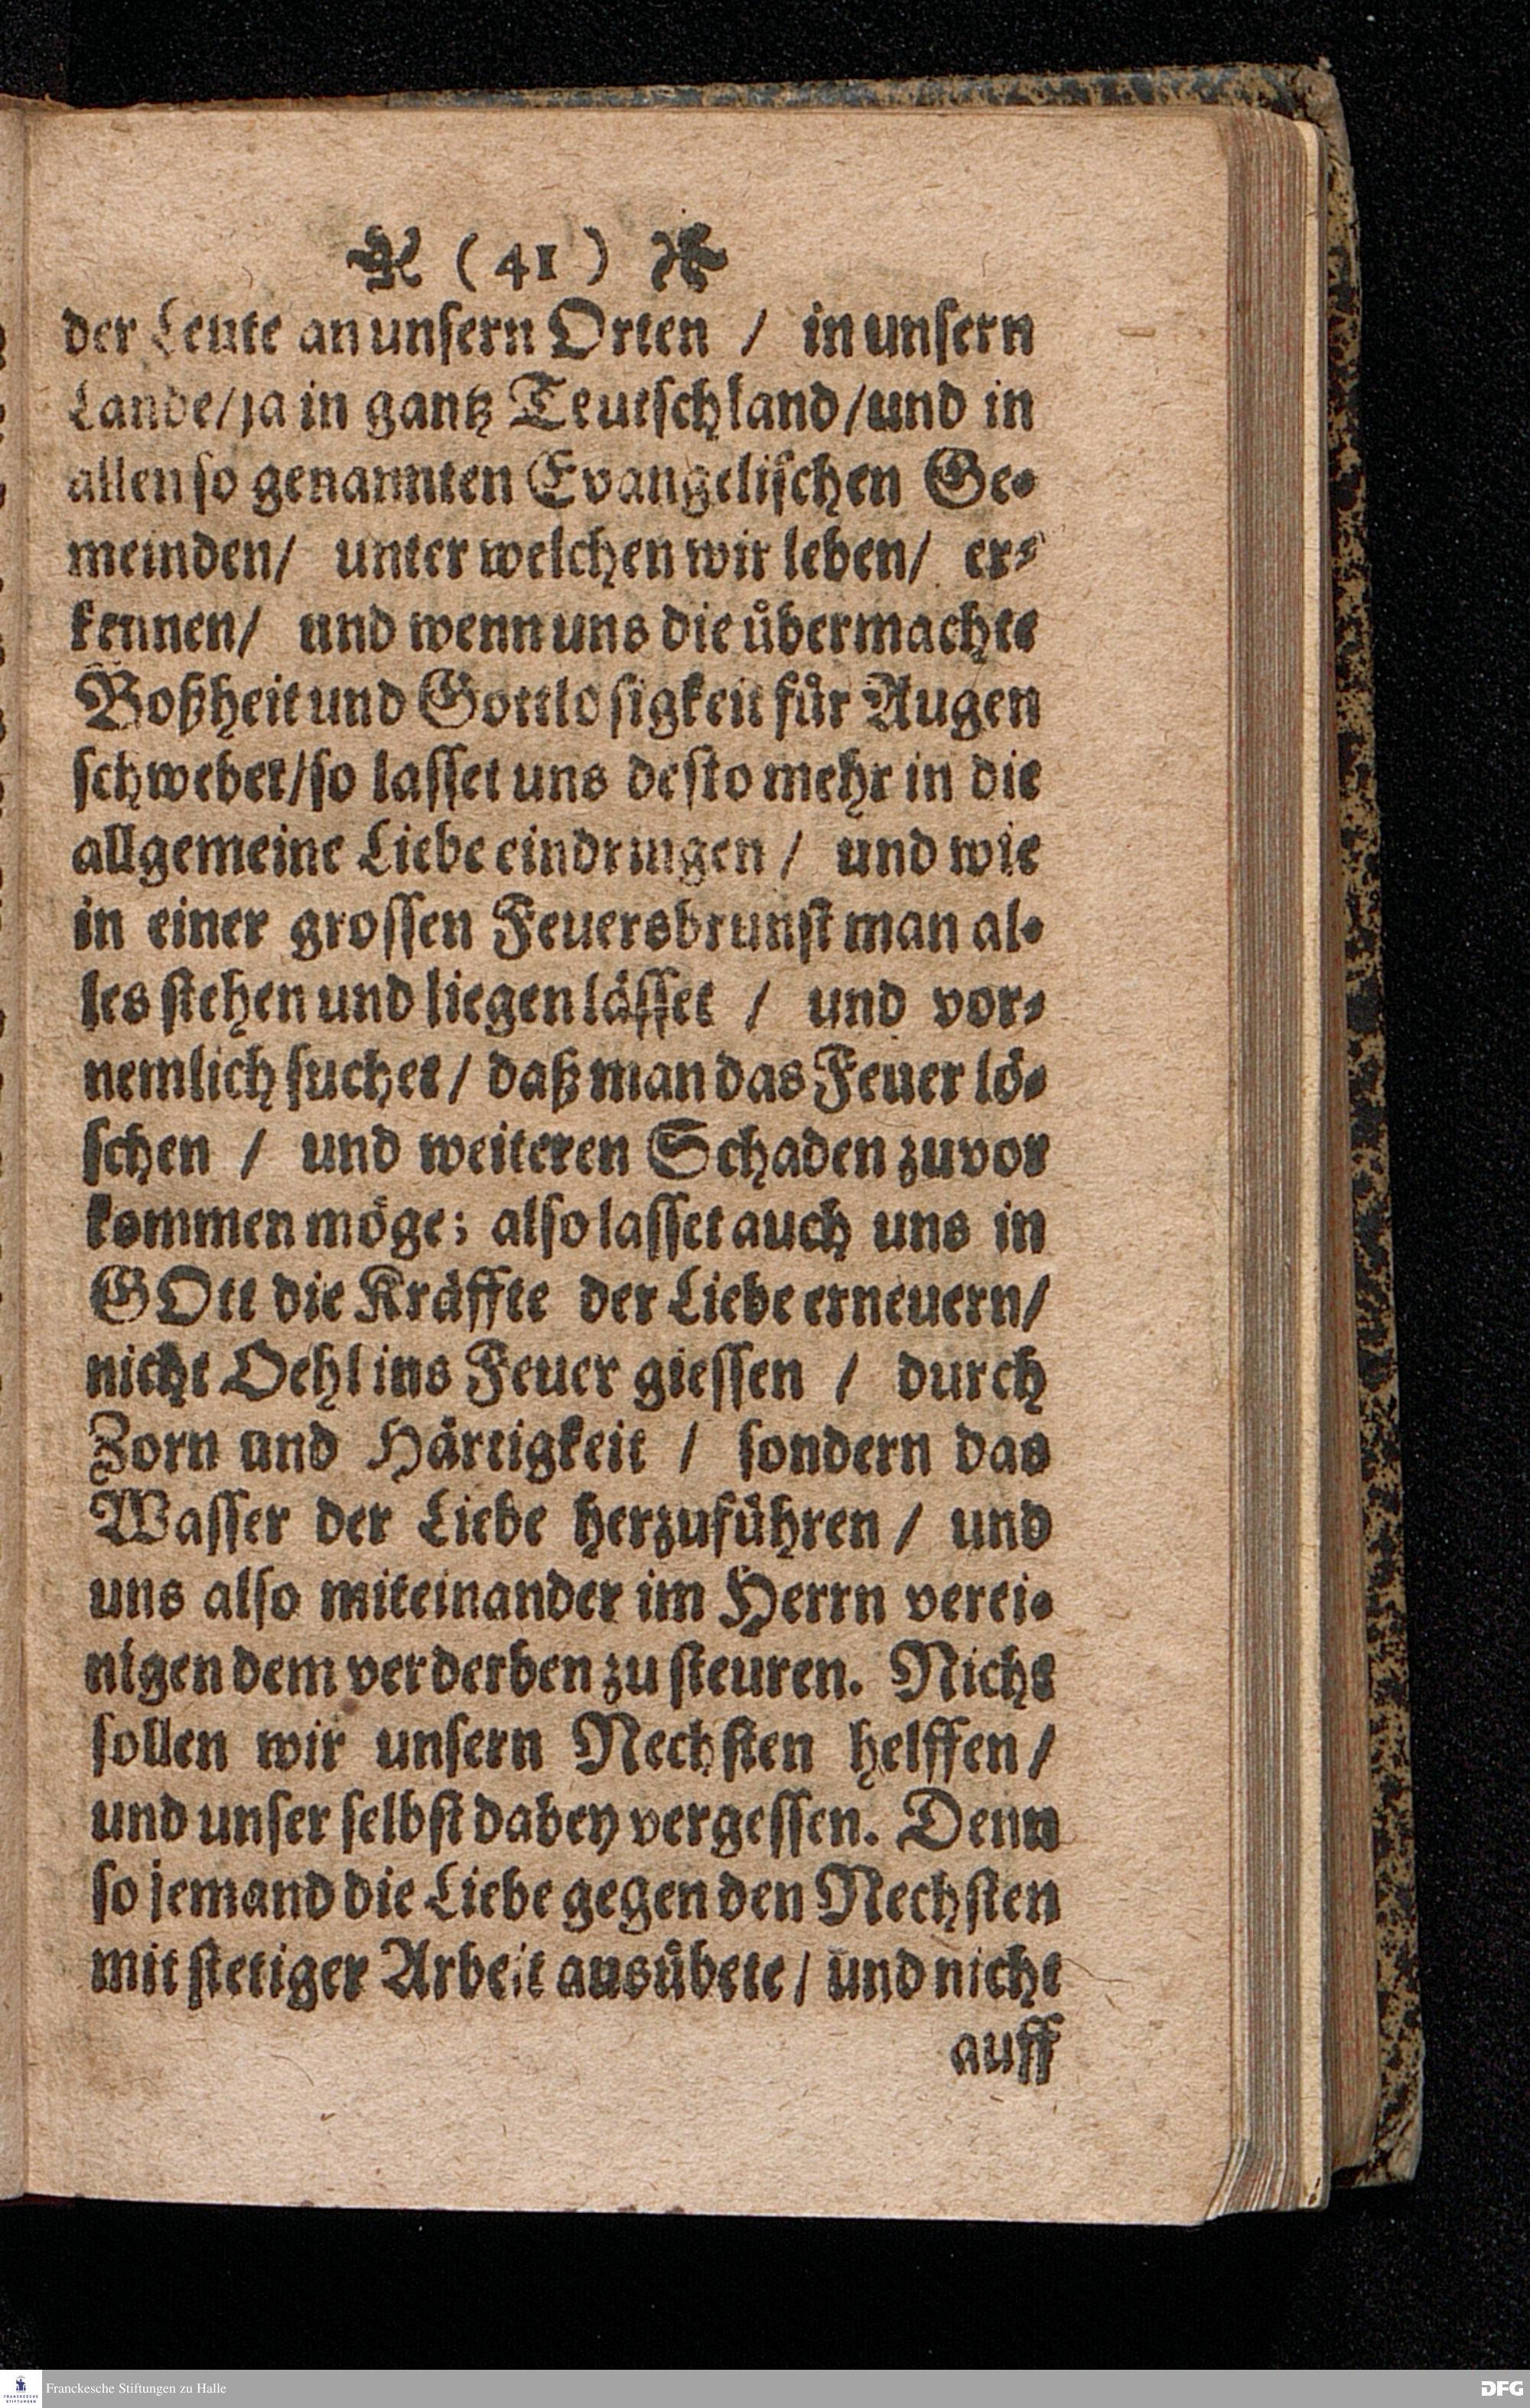 ( 41 )
der Leute an unsern Orten / in unsern
Lande/ja in gantz Teutschland/und in
allen so genannten Evangelischen Ge⸗
meinden/ unter welchen wir leben/ er⸗
kennen/ und wenn uns die uͤbermachte
Boßheit und Gottlosigkeit fuͤr Augen
schwebet/so lasset uns desto mehr in die
allgemeine Liebe eindringen / und wie
in einer grossen Feuersbrunst man al⸗
les stehen und liegen lässet / und vor⸗
nemlich suchet/ daß man das Feuer lö⸗
schen / und weiteren Schaden zuvor
kommen möge; also lasset auch uns in
GOtt die Kräffte der Liebe erneuern/
nicht Oehl ins Feuer giessen / durch
Zorn und Härtigkeit / sondern das
Wasser der Liebe herzuführen/ und
uns also miteinander im Herrn verei⸗
nigen dem verderben zu steuren. Nicht
sollen wir unsern Nechsten helffen/
und unser selbst dabey vergessen. Denn
so jemand die Liebe gegen den Nechsten
mit stetiger Arbeit ausuͤbete/ und nicht
auff
Franckesche Stiftungen zu Halle
FRANCKESCHE STIFTUNGEN
DFG